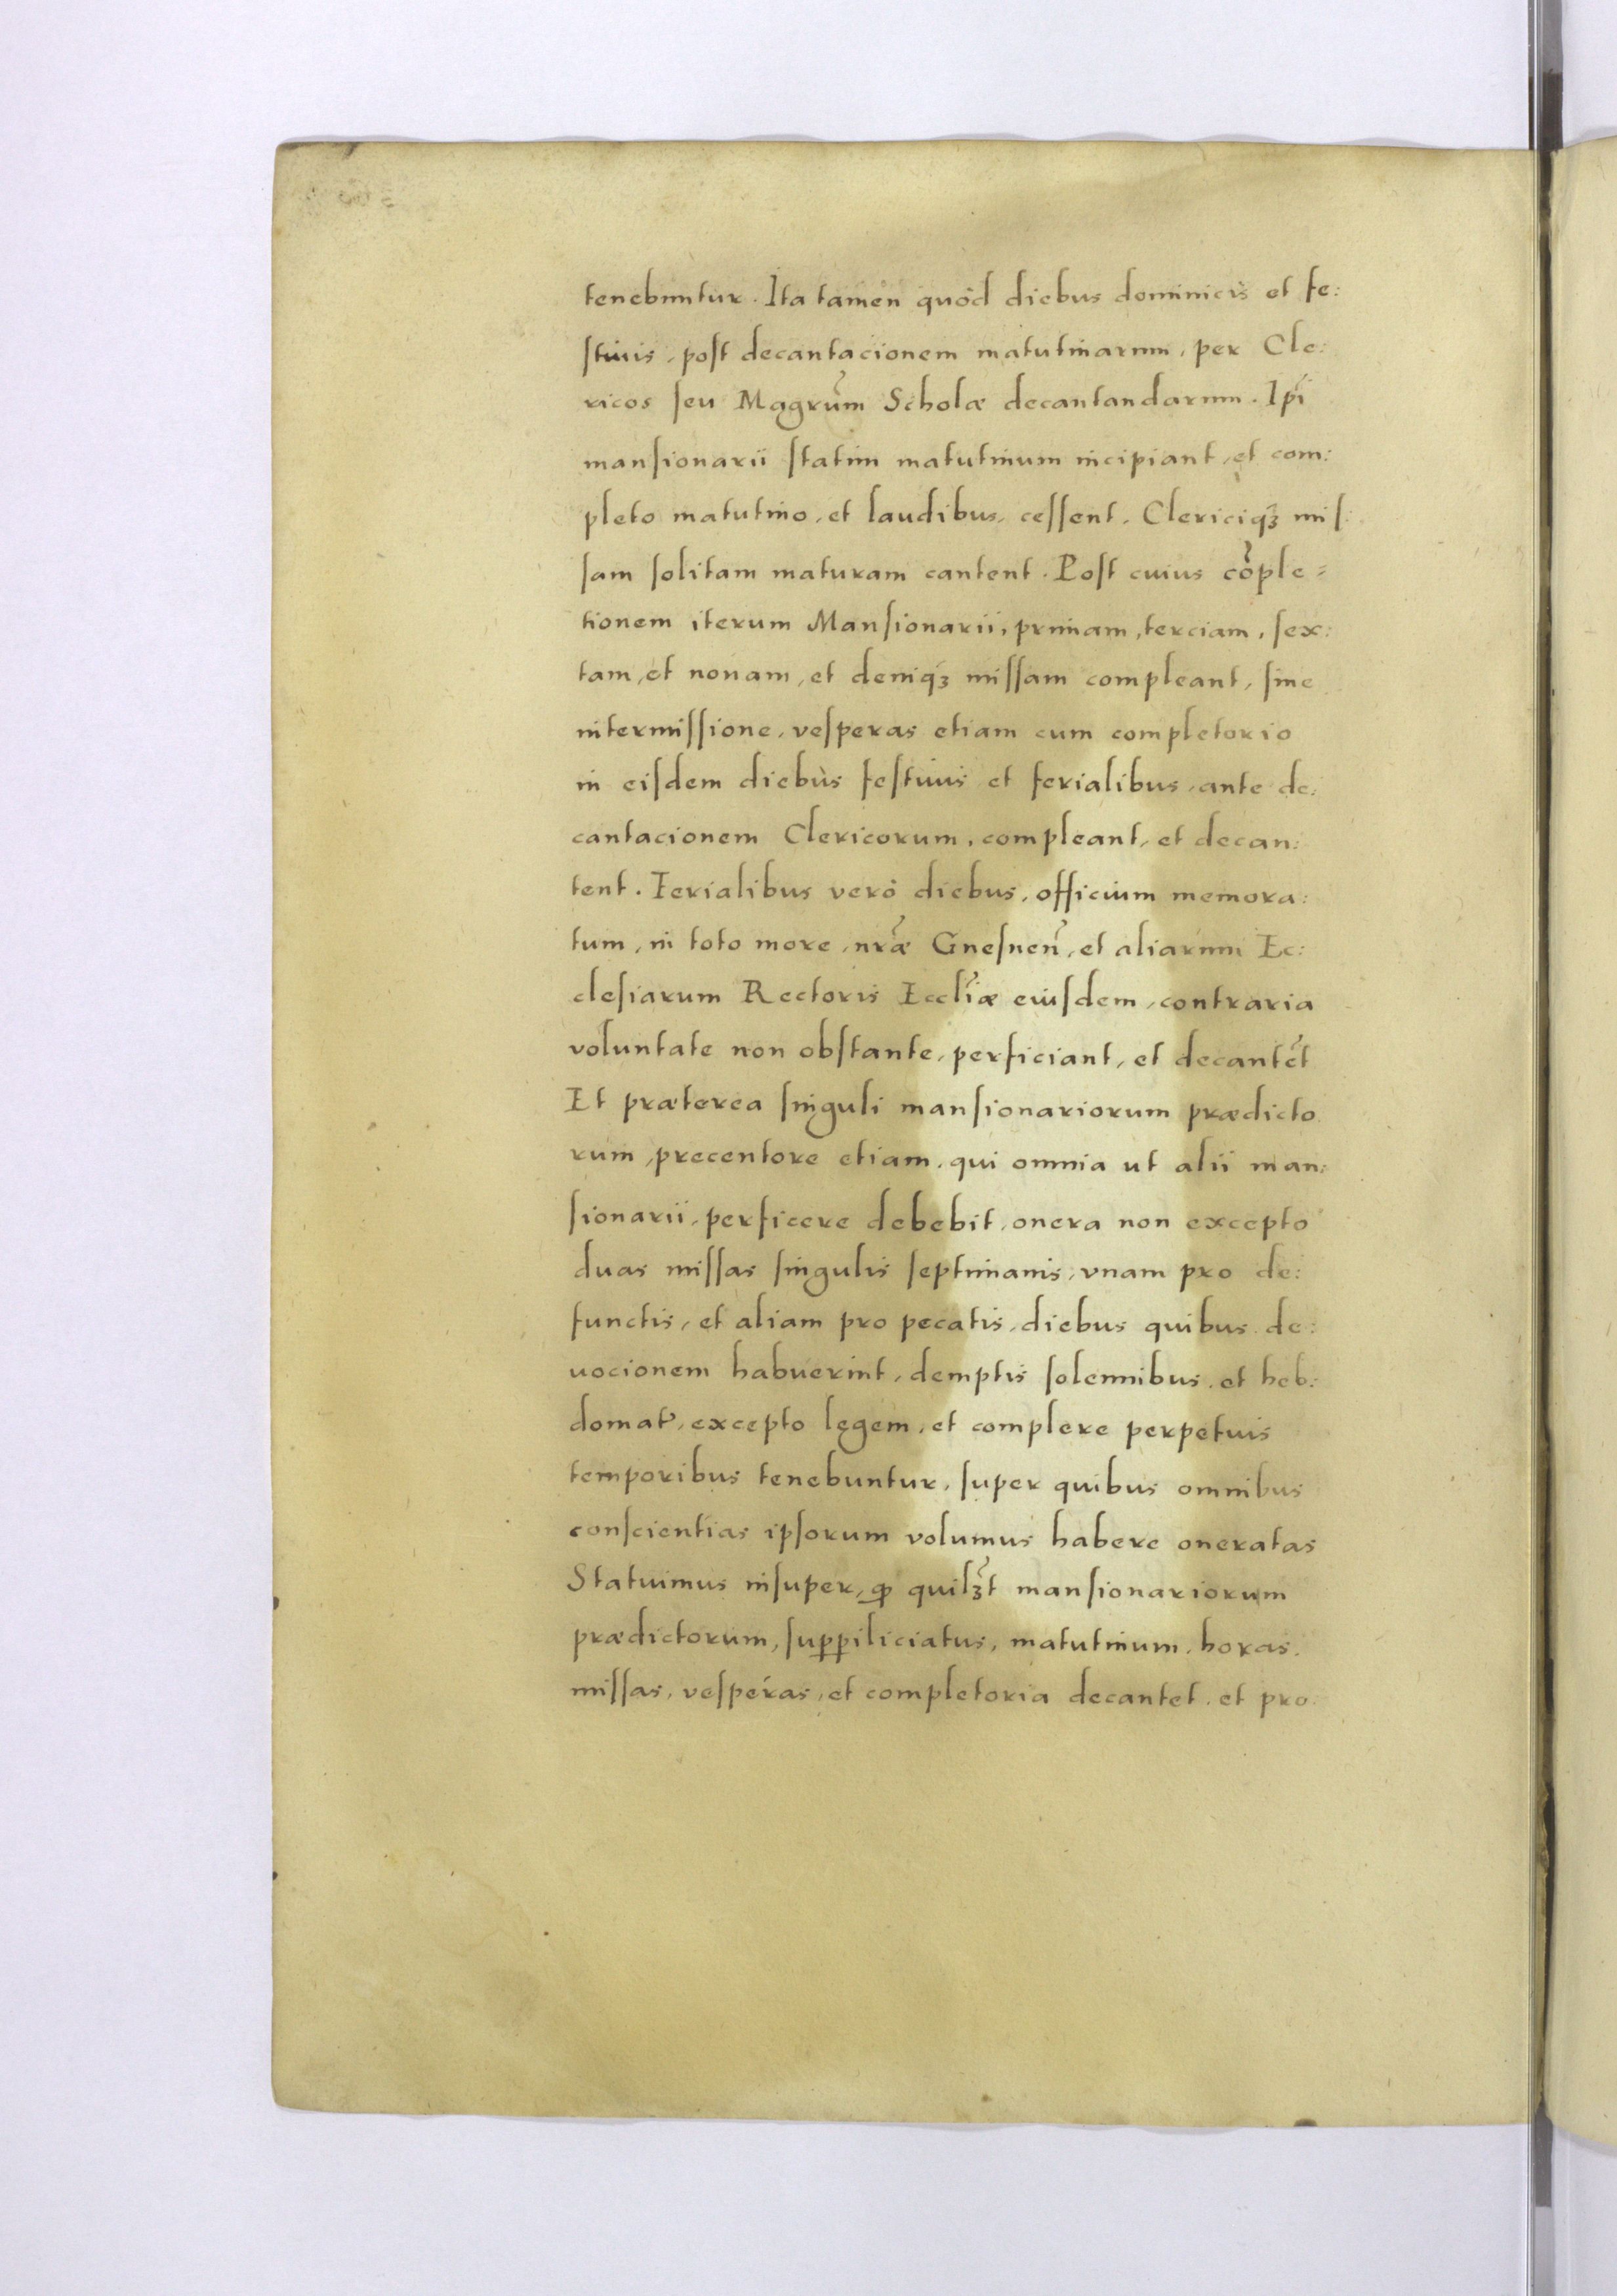 tenebuntur. Ita tamen quòd diebus dominicis et fe:
ſtiuis, poſt decantacionem matutinarum, per Cle:
ricos ſeu Magrum̃ Scholæ decantandarum. Ip̃i
manſionarii ſtatim matutinum incipiant, et com:
pleto matutino, et laudibus, ceſſent. Clericiqȝ miſ:
ſam ſolitam maturam cantent. Poſt cuius cõple-
tionem iterum Manſionarii, primam, terciam, ſex:
tam, et nonam, et deniqȝ miſſam compleant, ſine
intermiſſione, veſperas etiam cum completorio
in eiſdem diebùs feſtiuis et ferialibus, ante de:
cantacionem Clericorum, compleant, et decan:
tent. Ferialibus verò diebus, officium memora:
tum, in toto more, nr̃æ Gneſneñ, et aliarum Ec:
cleſiarum Rectoris Eccl̃iæ eiuſdem, contraria
voluntate non obſtante, perficiant, et decantẽt
Et præterea ſinguli manſionariorum prædicto
rum, precentore etiam, qui omnia ut alii man:
ſionarii, perficere debebit, onera non excepto
duas miſſas ſingulis ſeptimanis, vnam pro de:
functis, et aliam pro pecatis, diebus quibus de:
uocionem habuerint, demptis ſolennibus, et heb:
domat̃, excepto legem, et complere perpetuis
temporibus tenebuntur, ſuper quibus omnibus
conſcientias ipſorum volumus habere oneratas
Statuimus inſuper, ꝙ quilȝ̃t manſionariorum
prædictorum, ſuꝑpiliciatus, matutinum, horas,
miſſas, veſperas, et completoria decantet, et pro: